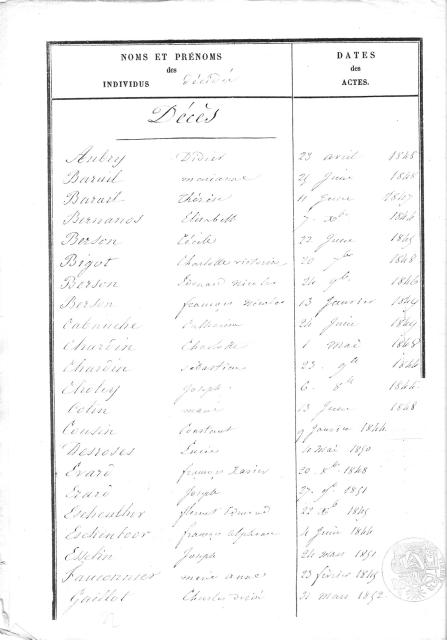 NOMS ET PRÉNOMS
des
INDIVIDUS décédés
DATES
des
ACTES.
Décès
Aubry Didier 23 avril 1848
Baruil marianne 29 Juin 1848
Thérèse 11 1847
Bernanos Elisabeth 7 Xbre 1844
Berson Cécile 22 Juin 1845
Bigot Charlotte victorine 20 7bre 1848
Berson Bernard nicolas 24 9bre 1846
Berson françois nicolas 13 Janvier 1844
Cabauche Catherine 24 Juin 1849
Chardin Charlotte 1 mai 1848
Chardin sébastien 23 9bre 1844
Choley Joseph 6 8bre 1844
Colin marie 13 Juin 1848
Cousin Constant 9 Janvier 1844
Desroses Lucie 4 mai 1850
Evard françois Xavier 20 Xbre 1848
Joseph 27 9bre 1851
22 Xbre 1845
françois alphonse 4 Juin 1844
Esselin Joseph 24 mars 1851
Fauconnier marie anne 23 février 1845
Charles 21 mars 1852